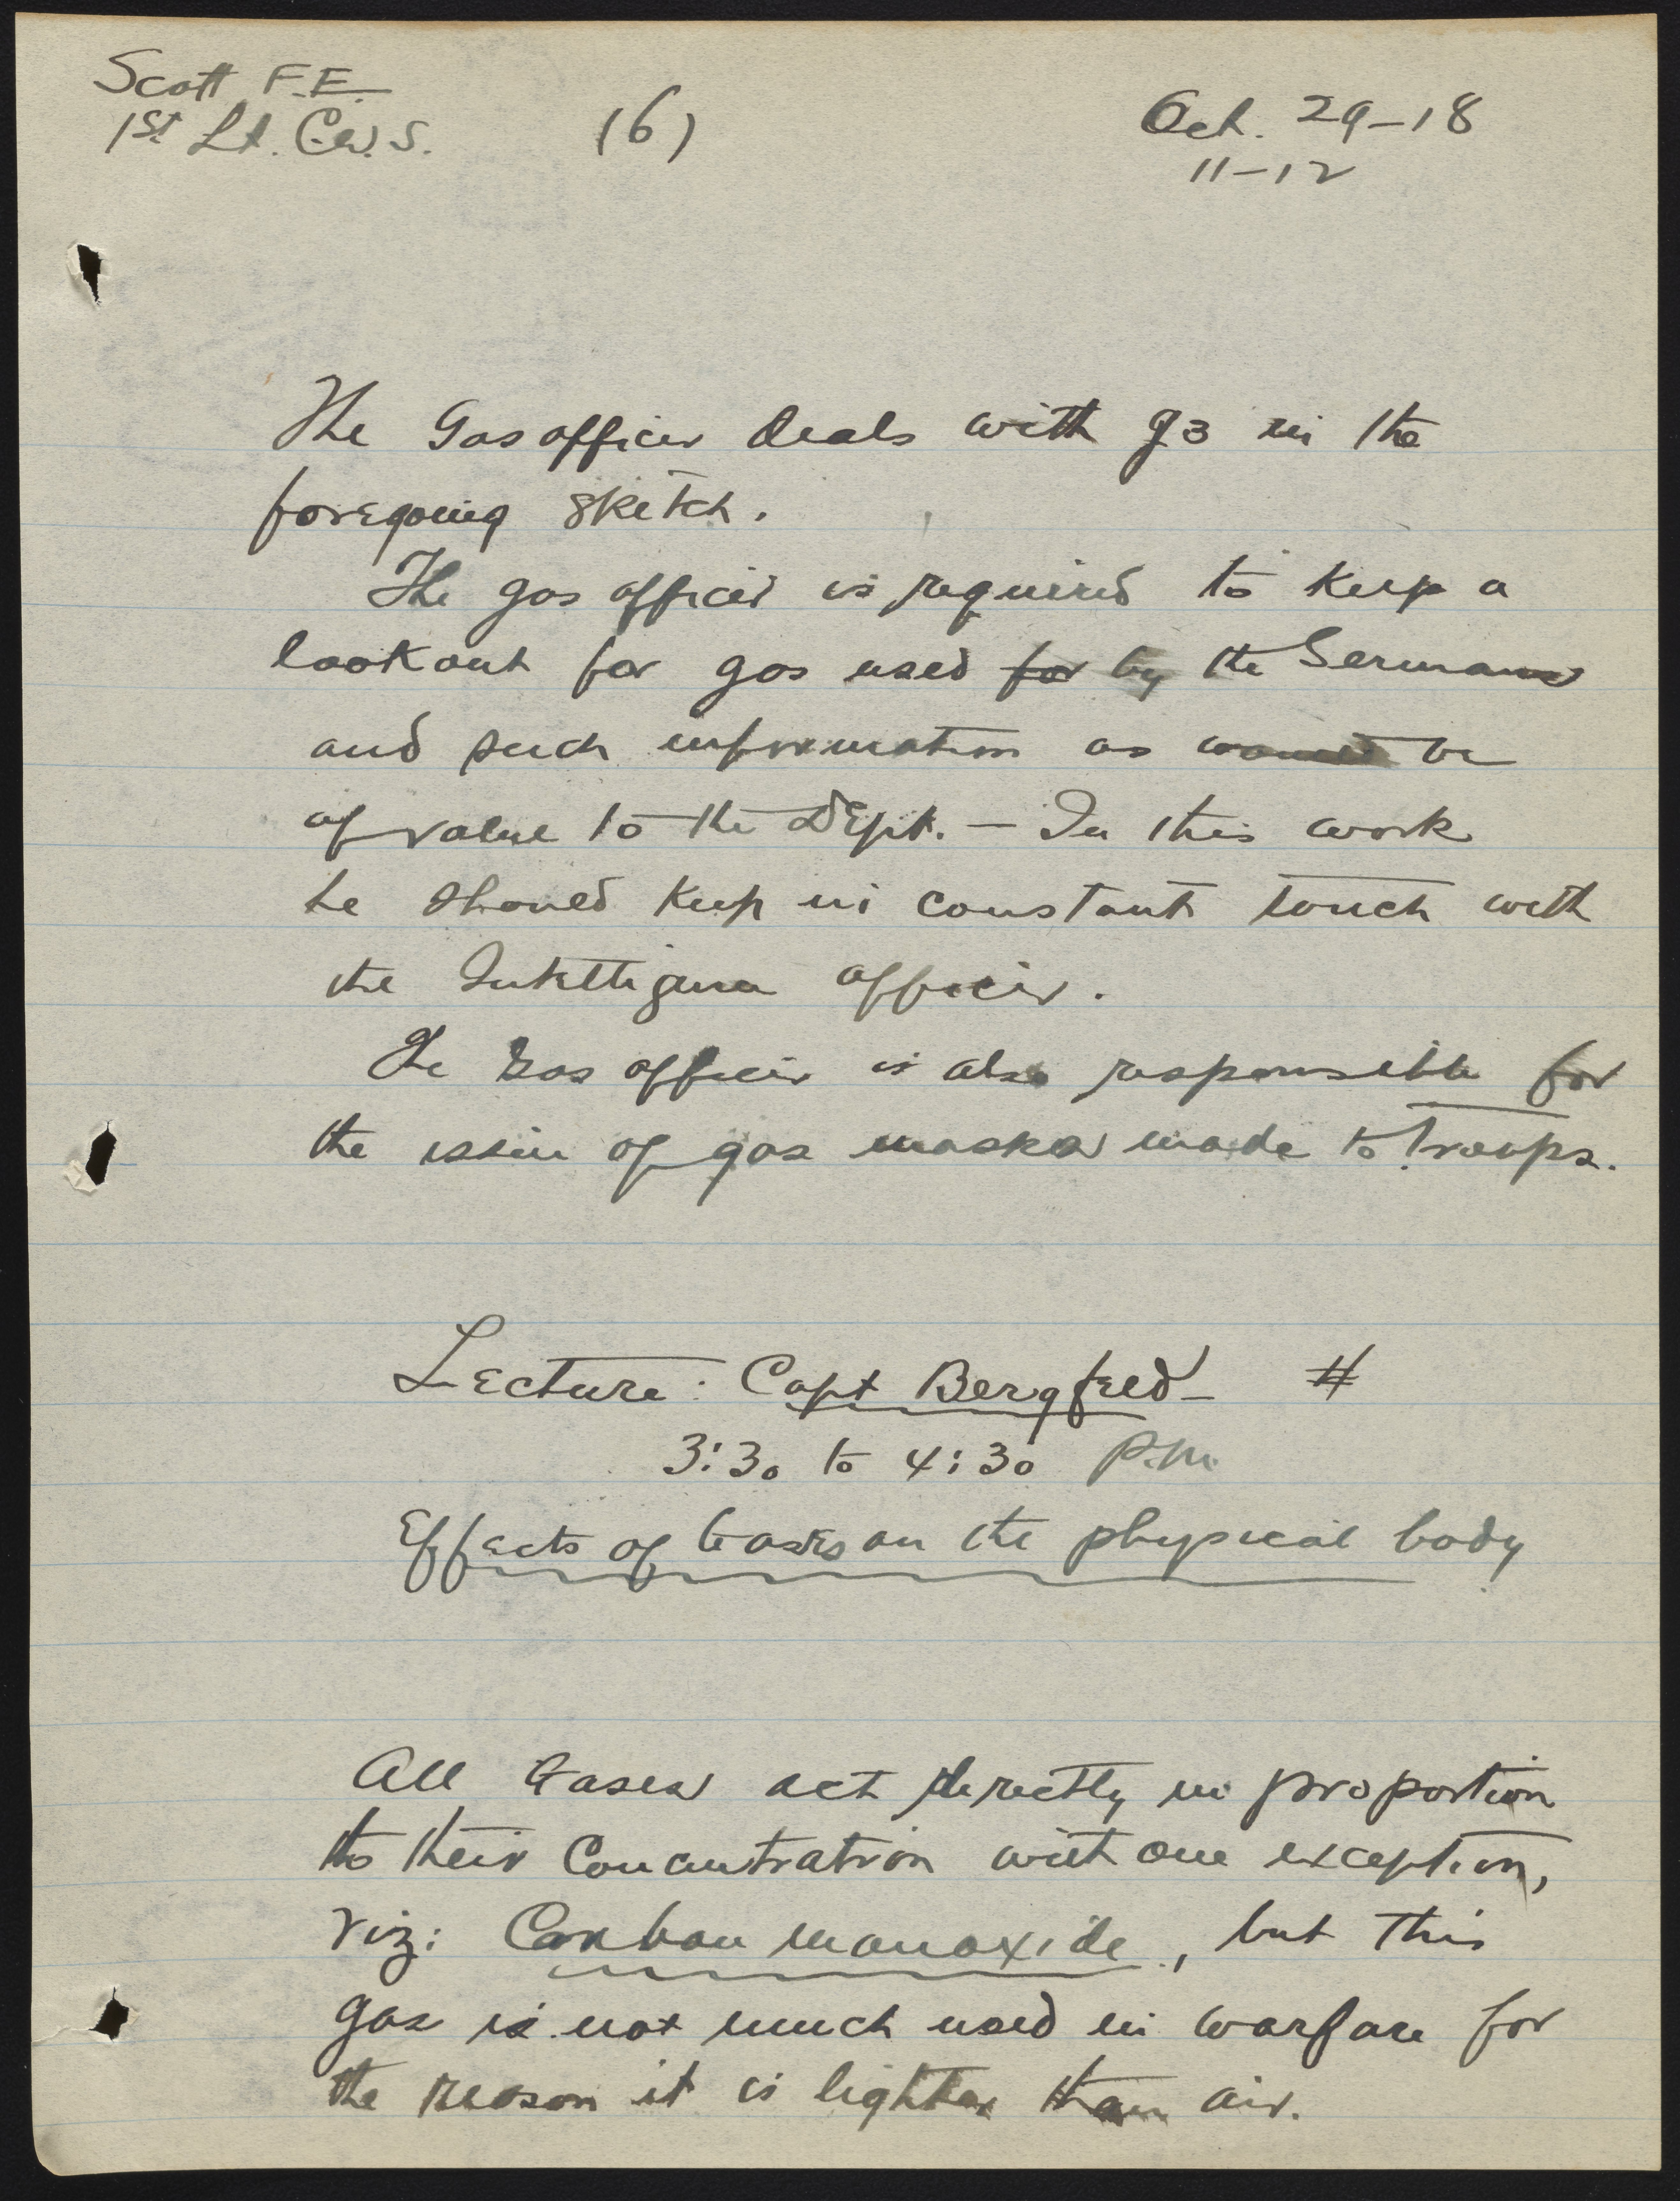 Scott F.E.
1st Lt. C.W.S.
(6)
Oct. 29-18
11-12
The Gas officer deals with G3 in the
foregoing sketch.
The gas officer is required to keep a
lookout for gas used for by the Germans
and such information as would be
of value to the Dept. — In this work
he should keep in constant touch with
the Intelligence officer.
The Gas officer is also responsible for
the issue of gas masks made to troops.
Lecture: Capt Bergfeed — #
3:30 to 4:30 P.M.
Effects of Gases on the physical body
All Gases act directly in proportion
to their Concentration with one exception,
viz: Carbon monoxide, but this
gas is not much used in warfare for
the reason it is lighter than air.